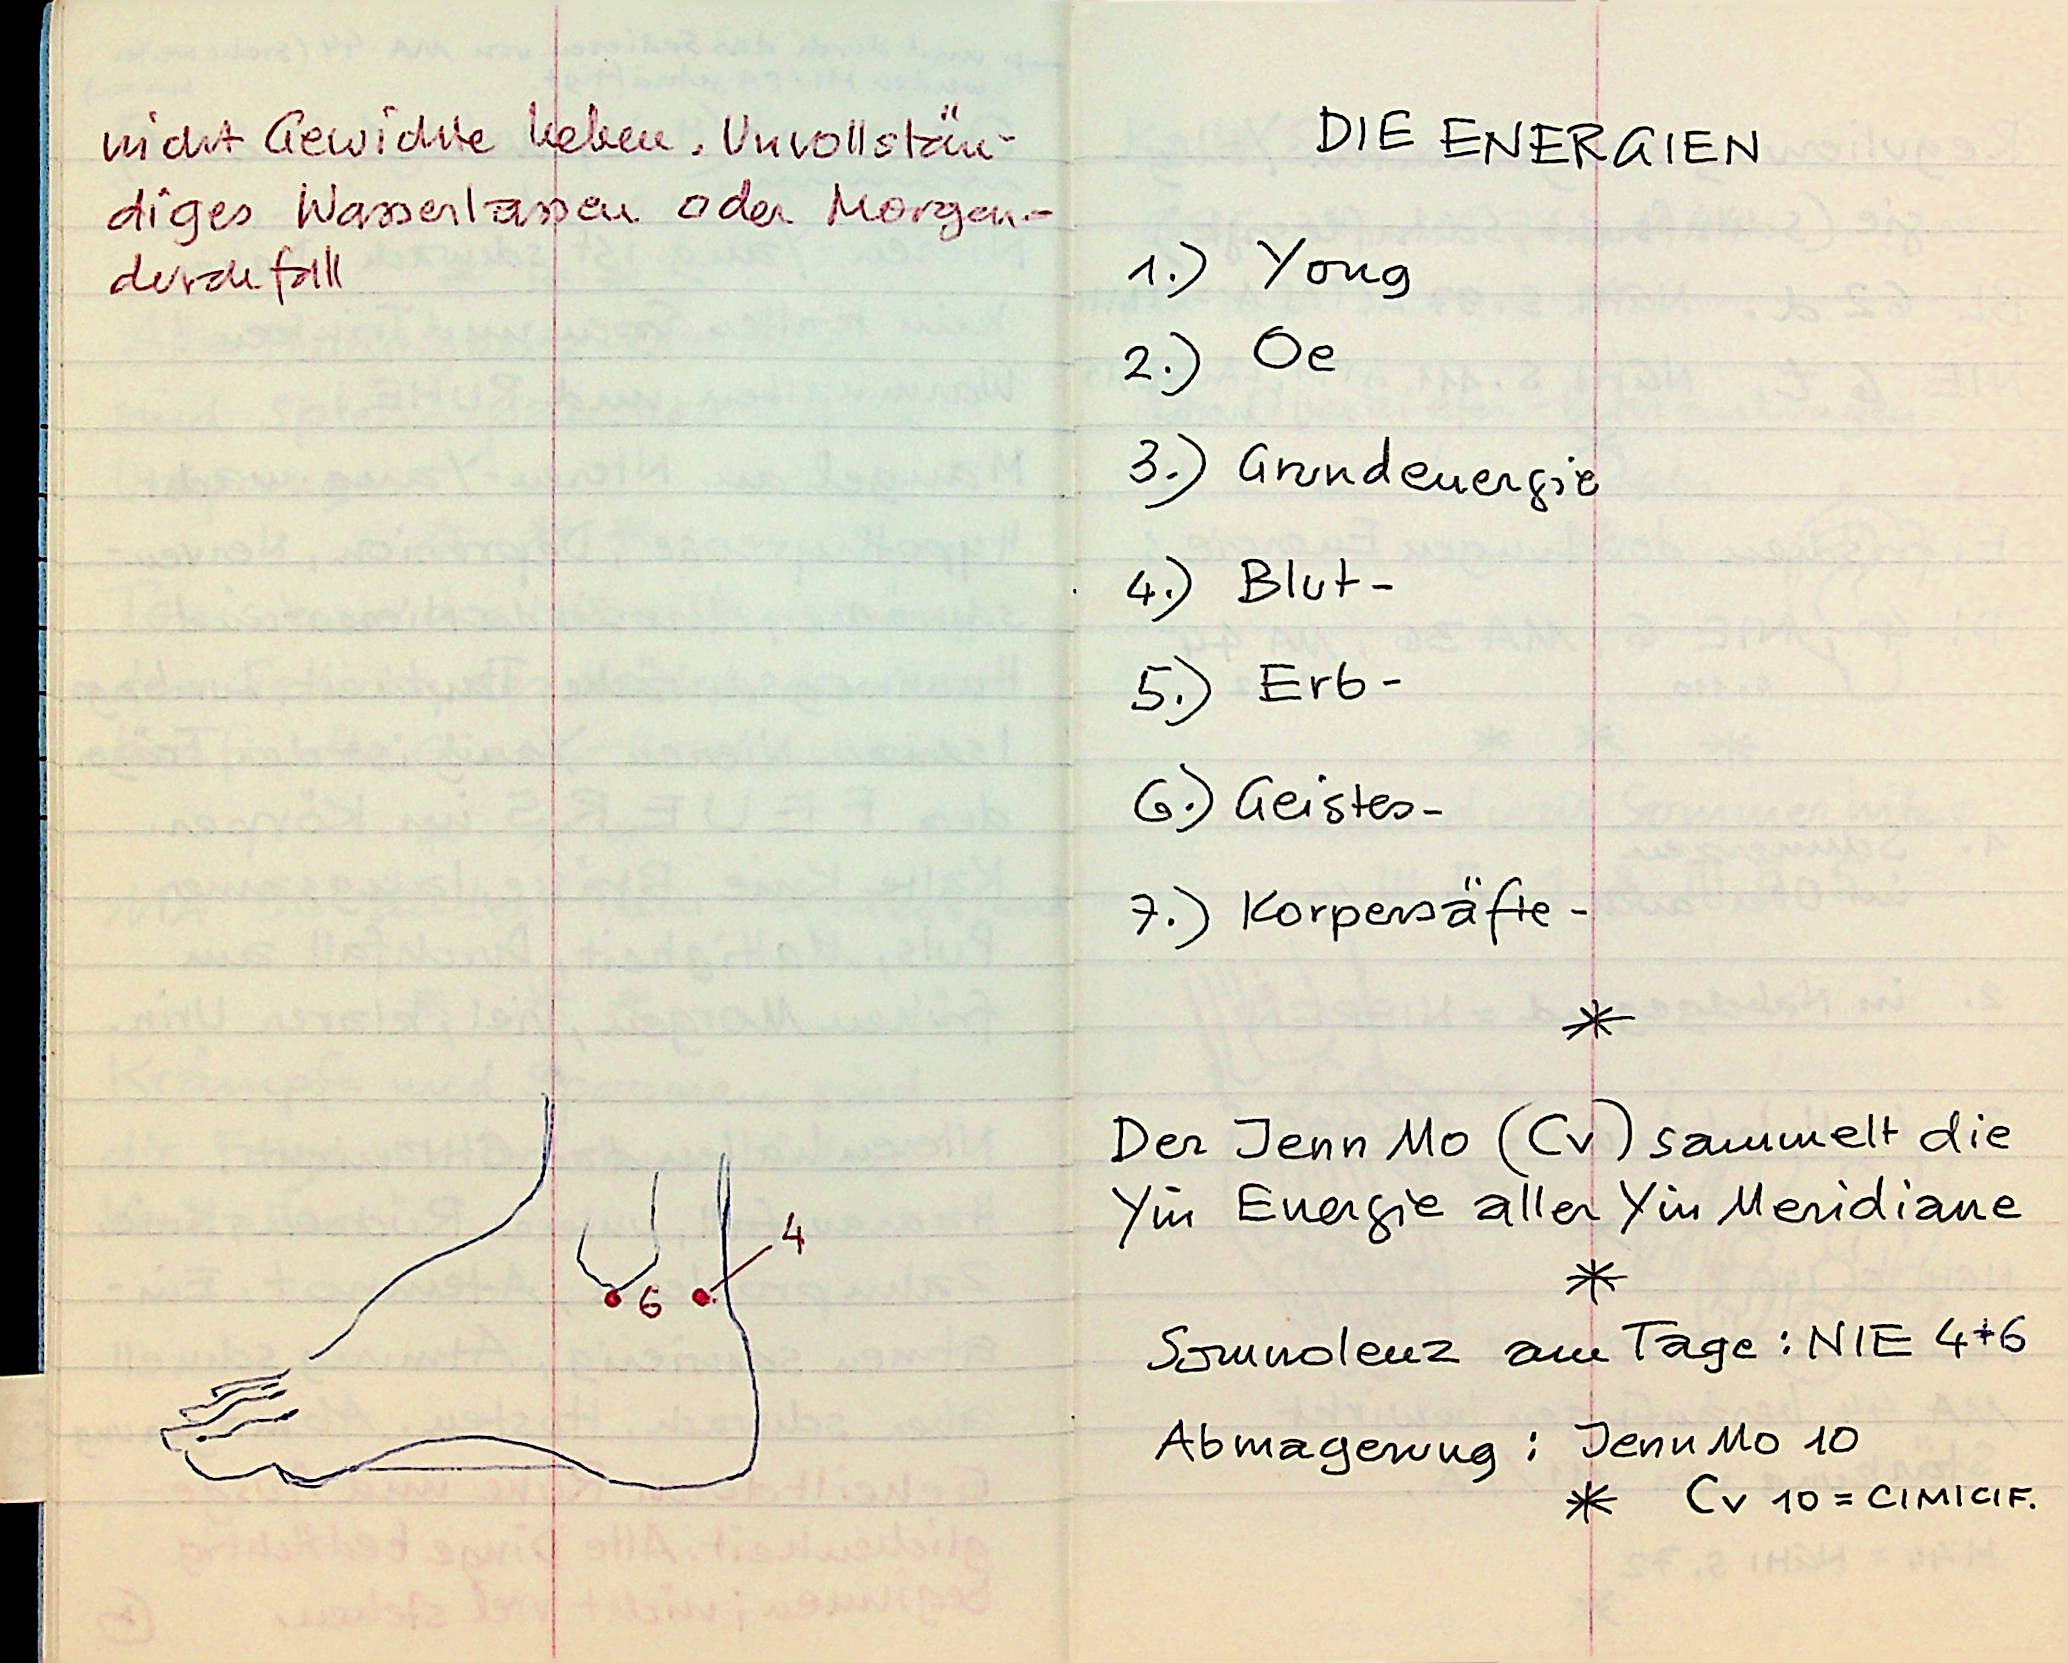 nicht Gewichte heben. Unvollstän-
diges Wasserlassen oder Morgen-
durchfall
4
6
DIE ENERGIEN
1.) Yong
2.) Oe
3.) Grundenergie
4.) Blut-
5.) Erb-
6.) Geistes-
7.) Korpersäfte-
*
Der Jenn Mo (Cv) sammelt die
Yin Energie aller Yin Meridiane
*
Somnolenz am Tage: NIE 4+6
Abmagerung: Jenn Mo 10
* Cv 10 = CIMICIF.